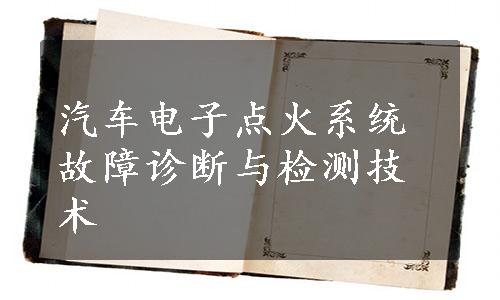 汽车电子点火系统
故障诊断与检测技
术